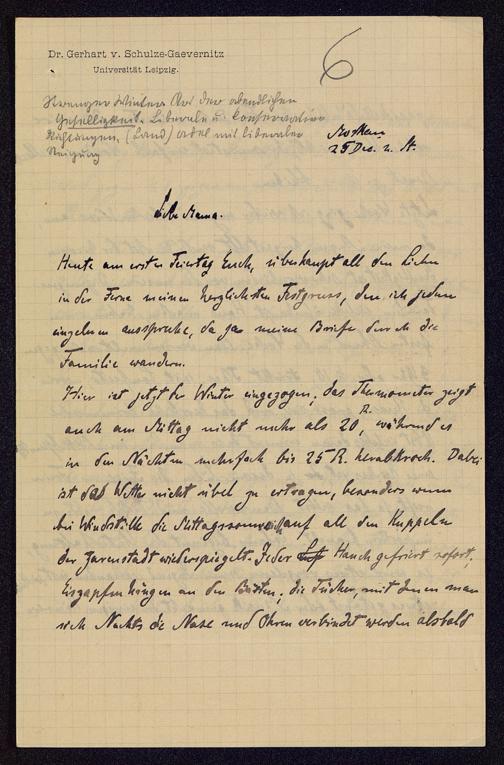 Dr. Gerhart v. Schulze-Gaevernitz
Universität Leipzig.
6
Strenger Winter. Art der abendlichen
Geselligkeit. Liberale u. Conservative
Richtungen. (Land) adel mit liberaler
Neigung
Moskau
25 Dec. n. St.
Liebe Mama.
Heute am ersten Feiertag Euch, überhaupt all den Lieben
in der Ferne meinen herzlichsten Festgruss, den ich jedem
einzelnen ausspreche, da ja meine Briefe durch die
Familie wandern.
Hier ist jetzt der Winter eingezogen; das Thermometer zeigt
auch am Mittag nicht mehr als 20 R, während es
in den Nächten mehrfach bis 25 R. herabkroch. Dabei
ist das Wetter nicht übel zu ertragen, besonders wenn
bei Windstille die Mittagssonne sich auf all den Kuppeln
der Zarenstadt wiederspiegelt. Jeder Hauch gefriert sofort;
Eiszapfen hängen an den Bärten; die Tücher, mit denen man
sich Nachts die Nase und Ohren verbindet werden alsbald